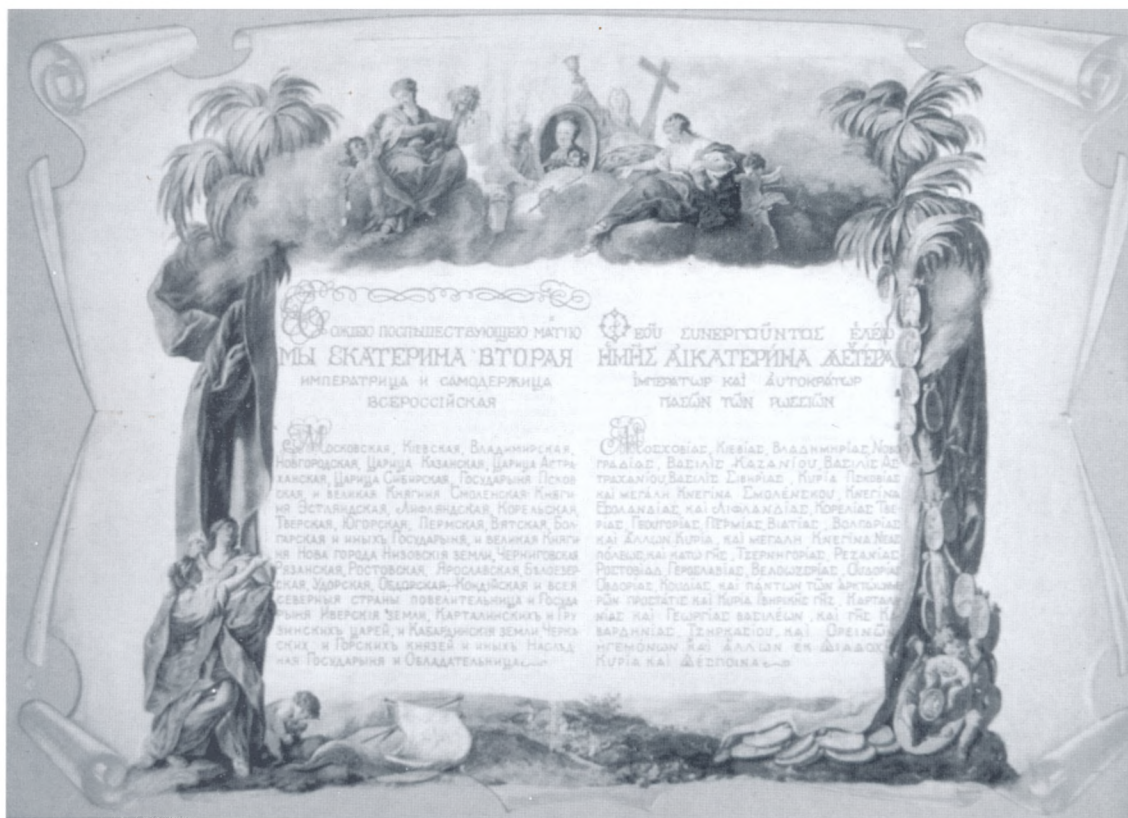 Божіею поспѣшествующею мл҃тію
МЫ ЕКАТЕРИНА ВТОРАЯ
ИМПЕРАТРИЦА И САМОДЕРЖИЦА
ВСЕРОССІЙСКАЯ
Московская, Кіевская, Владимирская,
Новгородская, Царица Казанская, Царица Астра
ханская, Царица Сибирская, Государыня Псков
ская и великая Княгиня Смоленская Княги
ня Эстляндская, Лифляндская, Корельская,
Тверская, Югорская, Пермская, Вятская, Бол
гарская и иныхъ Государыня, и великая Княги
ня Нова города Низовскія земли, Черниговская
Рязанская, Ростовская, Ярославская, Бѣлоезер
ская, Удорская, Обдорская Кондійская и всея
северныя страны повелительница и Госуда
рыня Иверскія земли, Карталинскихъ и Гру
зинскихъ царей, и Кабардинскія земли Черка
скихъ и Горскихъ князей и иныхъ Наслѣд
ная Государыня и Обладательница
Θεοῦ συνεργοῦντος ἐλέῳ
ἩΜΕῖΣ ΑἸΚΑΤΕΡΙΝΑ ΔΕΥΤΈΡΑ
ἸΜΠΕΡΆΤΩΡ ΚΑῚ ΑΥΤΟΚΡΆΤΩΡ
ΠΑΣῶΝ ΤῶΝ ῬΩΣΣΙῶΝ
Μοσχοβίας, Κιεβίας, Βλαδημηρίας, Νοβο
γραδίας, Βασιλὶς Καζανίου, Βασιλὶς Ἀσ
τραχανίου, Βασιλὶς Σιβηρίας, Κυρία Πσκοβίας
καὶ μεγάλη Κνεγίνα Σμολένσκου, Κνεγίνα
Εσθλανδίας, καὶ Λιφλανδίας, Κορελίας Τβε
ρίας, Γεουγορίας, Περμίας, Βιατίας, Βολγαρίας
καὶ ἄλλων Κυρία, καὶ μεγάλη Κνεγίνα Νέας
πόλεως καὶ κάτω γῆς, Τζερνηγορίας, Ρεζανίας
Ροστοβίας, Γεροσλαβίας, Βελοωζερίας, Ουδορίας
Οβδορίας, Κονδίας, καὶ πάντων τῶν
προστάτις καὶ Κυρία Ιβηρικῆς γῆς, Καρταλι
νίας καὶ Γεωργίας βασιλέων, καὶ γῆς Κα
βαρδηνίας, Τζηρκασίου, καὶ Ορεινῶν
ηγεμόνων καὶ ἄλλων ἐκ διαδοχῆς
Κυρία καὶ Δέσποινα